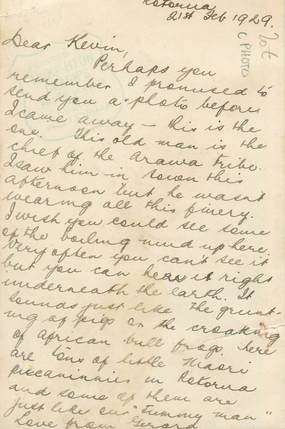 Rotorua
21st Feb 1929.
Dear Kevin,
Perhaps you
remember I promised to
send you a photo before
I came away – this is the
one. This old man is the
chief of the Arawa tribe.
I saw him in town this
afternoon but he wasn't
wearing all this finery.
I wish you could see some
of the boiling mud up here.
Very often you can't see it
but you can hear it right
underneath the earth. It
sounds just like the grunt-
ing of pigs or the croaking
of african bull frogs. here
are tons of little Maori
piccaninnies in Rotorua
and some of them are
just like our "Tummy man"
Love from Gerard
C PHOTO